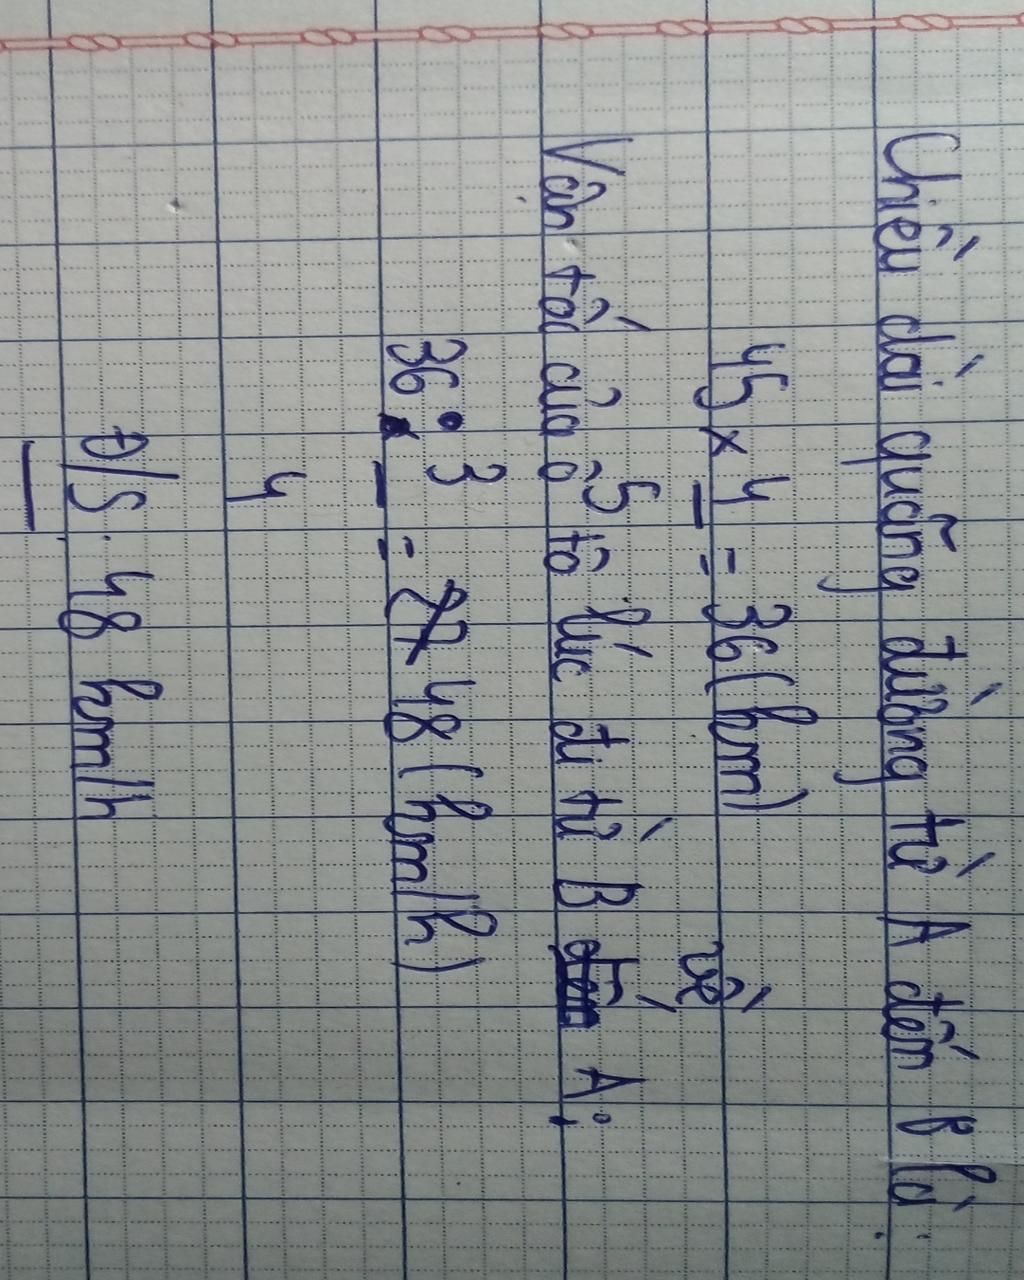 Chiều dài quãng đường từ A đến B là:
45 x 4/5 = 36 (km)
Vận tốc của ô tô lúc đi từ B về A:
36 : 3/4 = 48 (km/h)
Đ/S: 48 km/h